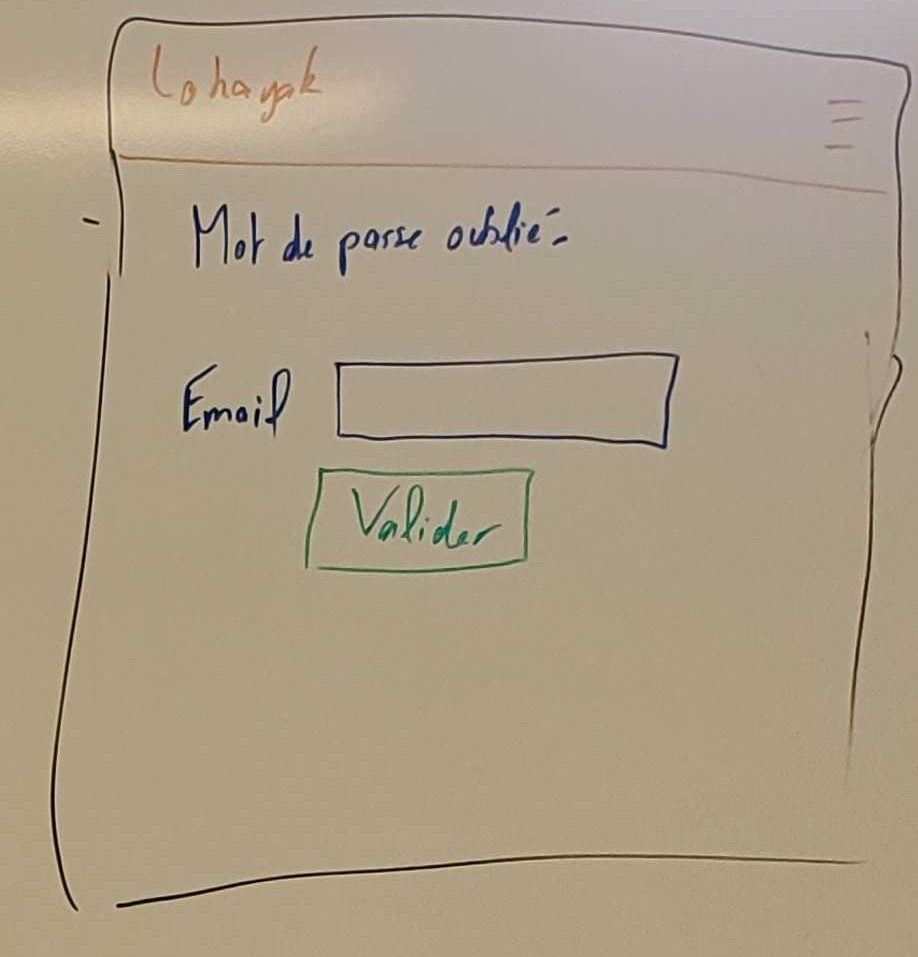 Lohayak
Mot de passe oublié
Email
Valider